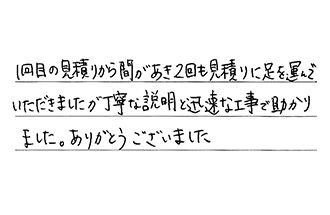 1回目の見積りから間があき2回も見積りに足を運んで
いただきましたが丁寧な説明と迅速な工事で助かり
ました。ありがとうございました